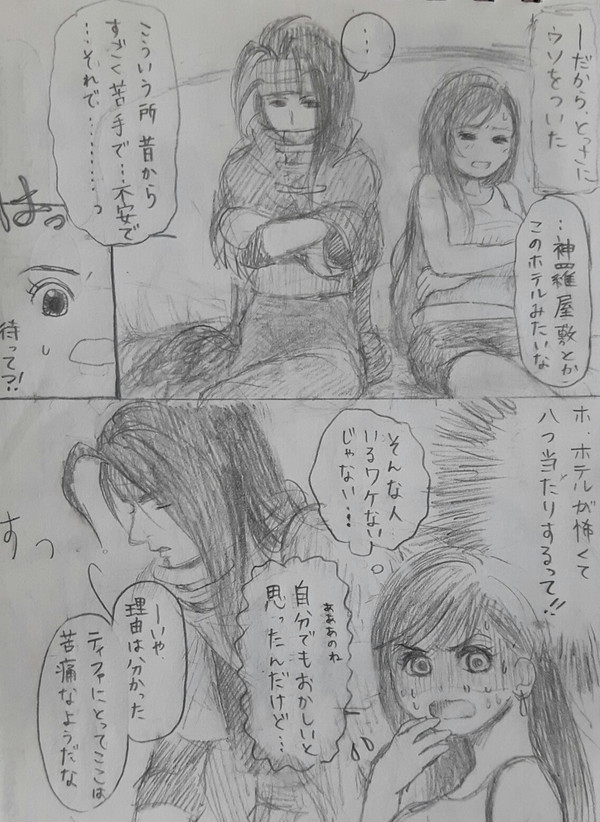 ーだから、とっさに
ウソをついた
…神羅屋敷とか、
このホテルみたいな
…
こういう所 昔から
すごく苦手で…不安で
…それで………っ
はっ
待って?!
ホ、ホテルが怖くて
八つ当たりするって!!
そんな人
いるワケない
じゃない…
あああのね
自分でもおかしいと
思ったんだけど…
ーいや、
理由は、分かった
ティファにとってここは
苦痛なようだな
すっ